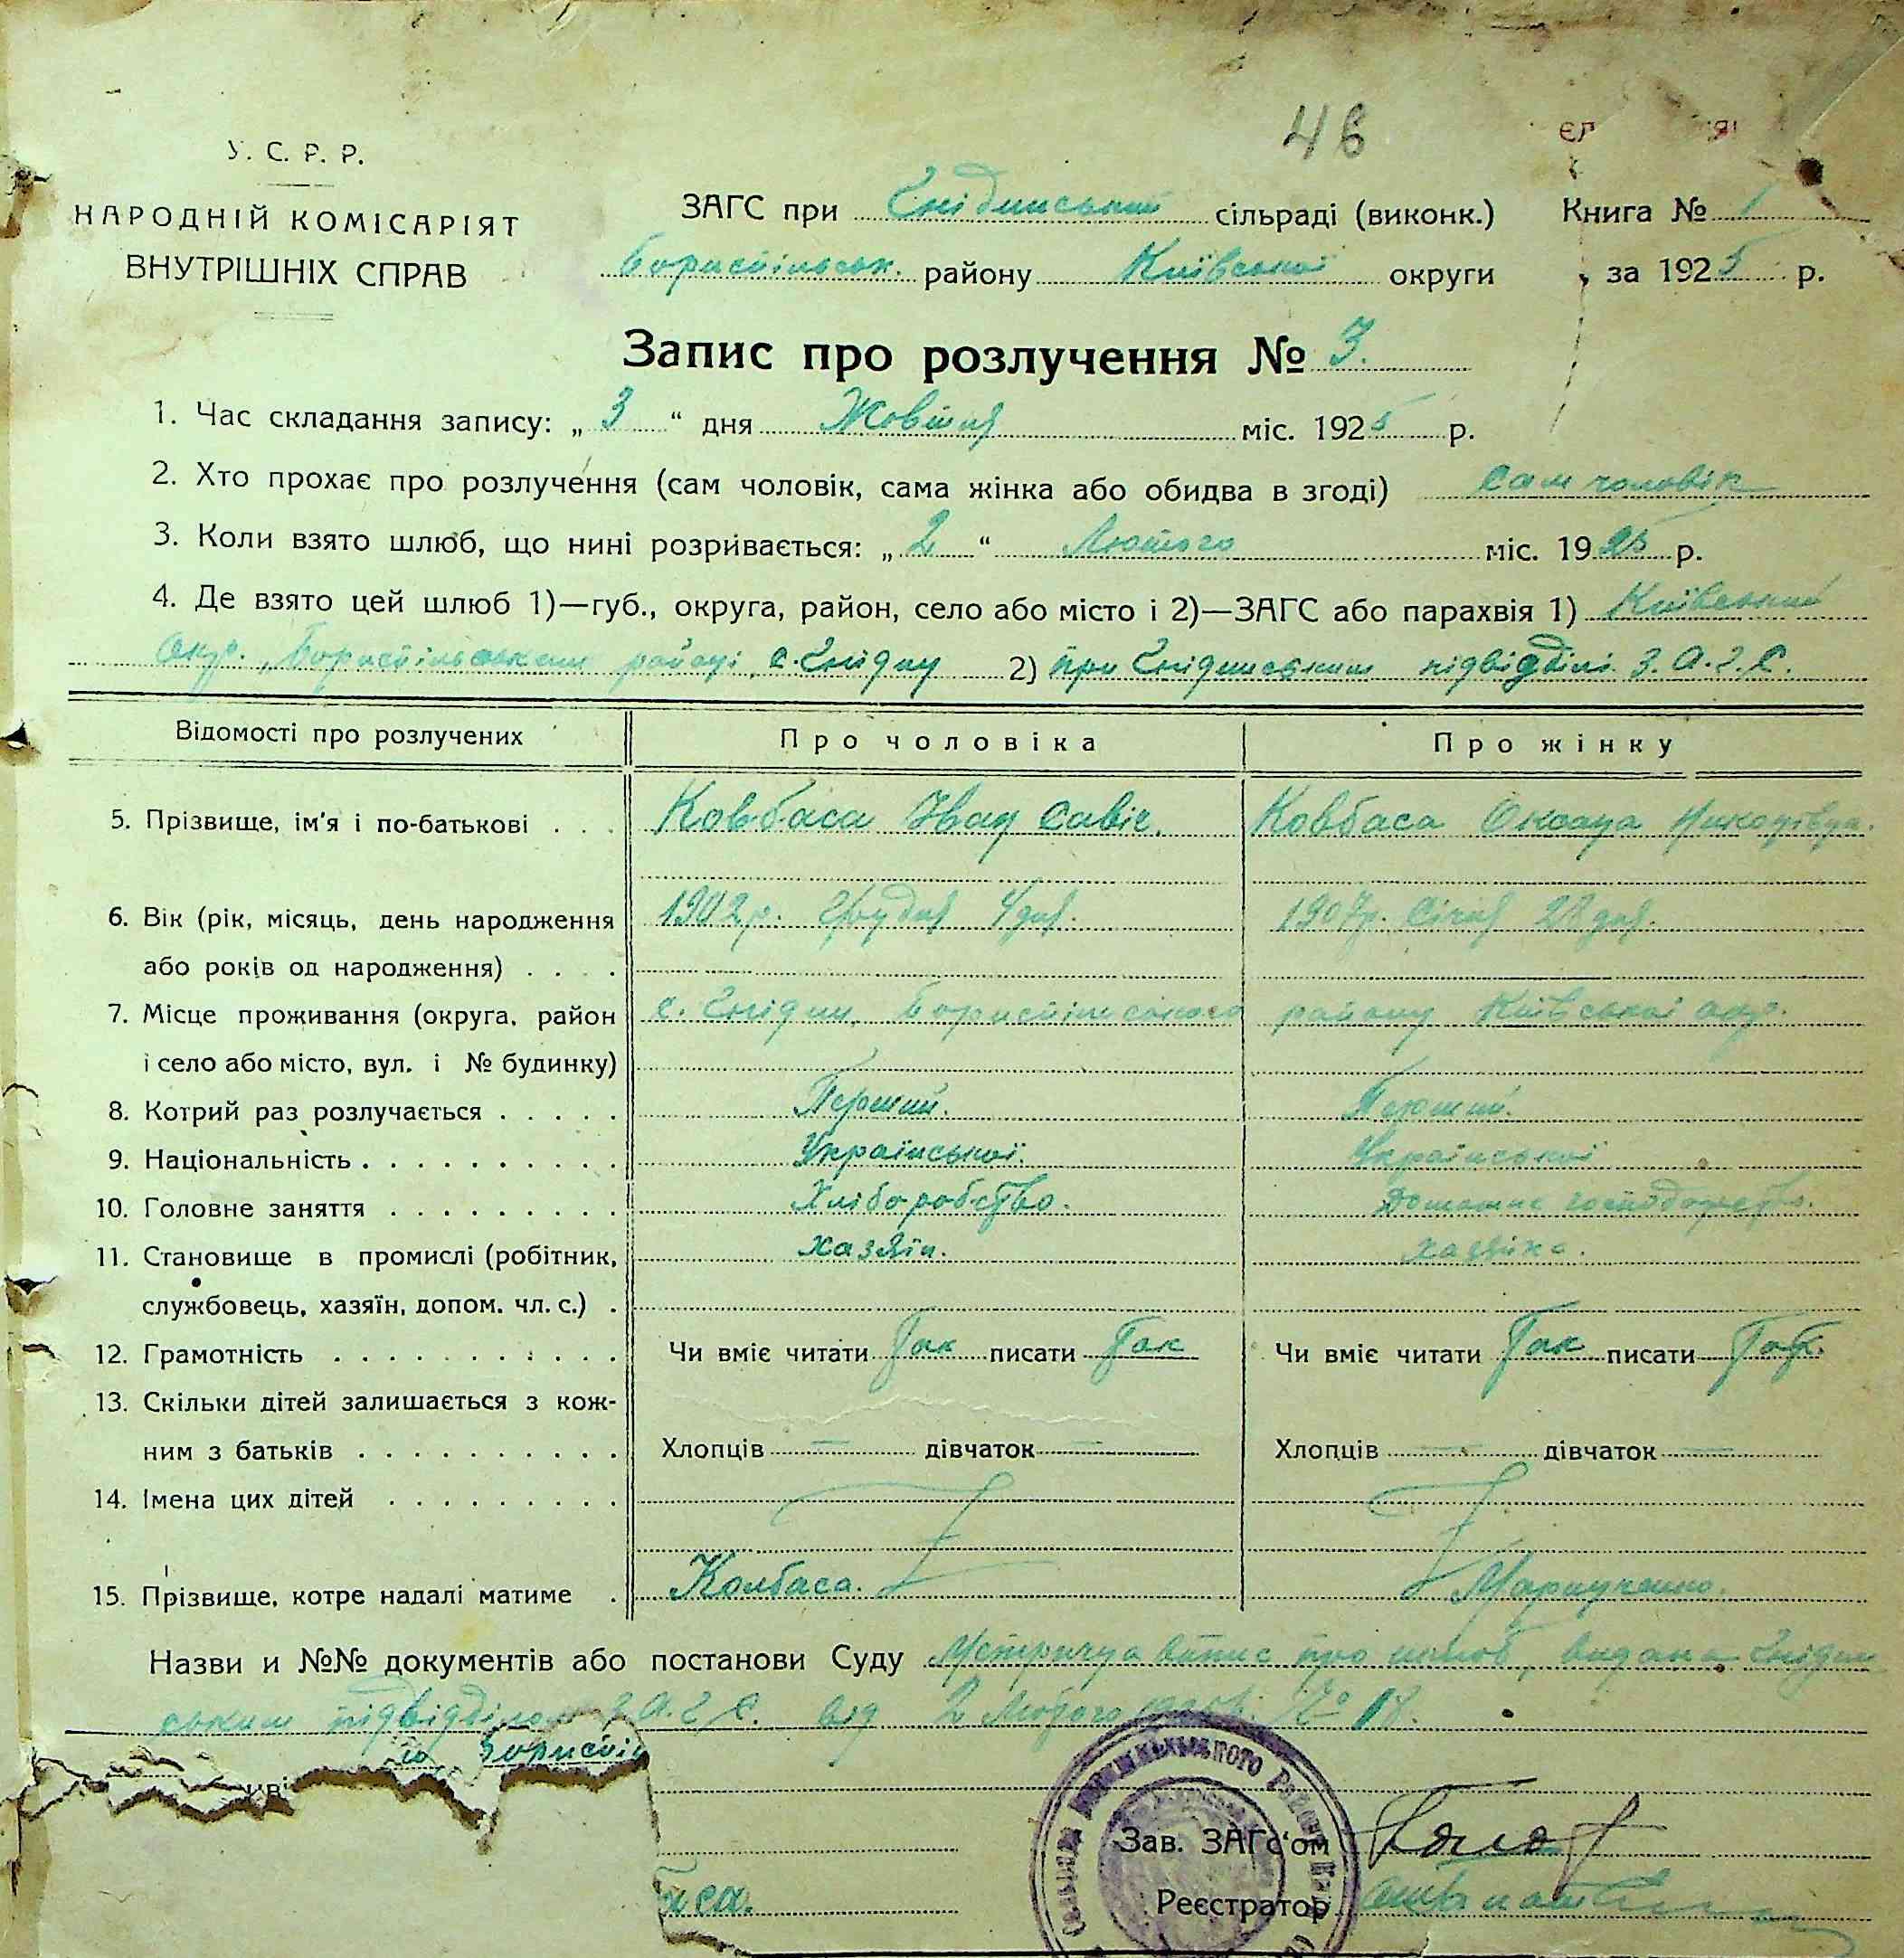 48
У. С. Р. Р.
НАРОДНІЙ КОМІСАРІЯТ
ВНУТРІШНІХ СПРАВ
ЗАГС при Гнідинській сільраді (виконк.) Книга № 1
Бориспільськ. району Київської округи за 1925 р.
Запис про розлучення № 3.
1. Час складання запису: „ 3 “ дня Жовтня міс. 1925 р.
2. Хто прохає про розлучення (сам чоловік, сама жінка або обидва в згоді) Сам чоловік
3. Коли взято шлюб, що нині розривається: „ 2 “ Лютого міс. 1925 р.
4. Де взято цей шлюб 1)—губ., округа, район, село або місто і 2)—ЗАГС або парахвія 1) Київський
окр. Бориспільским районі, с. Гнідин 2) при Гнідинським підвідділі З.А.Г.С.
Відомості про розлучених Про чоловіка Про жінку
5. Прізвище, ім'я і по-батькові . . . Ковбаса Іван Савіч. Ковбаса Оксана
6. Вік (рік, місяць, день народження 1902 р. Грудня 4 дня. 1907р. Січня 28 дня.
або років од народження) . . . .
7. Місце проживання (округа, район с. Гнідин, Бориспільського району Київської окр.
і село або місто, вул. і № будинку)
8. Котрий раз розлучається . . . . . Перший. Перший.
9. Національність . . . . . . . . . . Української. Української
10. Головне заняття . . . . . . . . . Хліборобство. Домашнє господарство.
11. Становище в промислі (робітник, хазяїн. хазяйка.
службовець, хазяїн, допом. чл. с.) .
12. Грамотність . . . . . . . . . . . Чи вміє читати Так писати Так Чи вміє читати Так писати Так.
13. Скільки дітей залишається з кож-
ним з батьків . . . . . . . . . . Хлопців — дівчаток — Хлопців — дівчаток —
14. Імена цих дітей . . . . . . . . .
15. Прізвище, котре надалі матиме . Колбаса. Марпученко.
Назви и №№ документів або постанови Суду Метрична випис про шлюб, видана Гнідин
ським підвідділом З.А.Г.С. від 2 Лютого 1925р. № 18.
Зав. ЗАГс'ом
Реєстратор